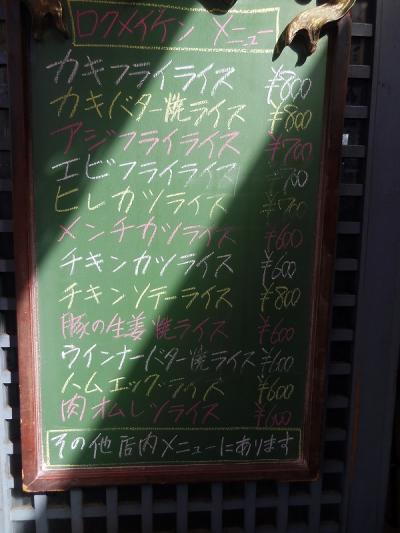 ロクメイケン メニュー
カキフライライス ¥800
カキバター焼ライス ¥800
アジフライライス ¥700
エビフライライス ¥700
ヒレカツライス
メンチカツライス ¥600
チキンカツライス ¥600
チキンソテーライス ¥800
豚の生姜焼ライス ¥600
ウインナーバター焼ライス ¥600
ハムエッグライス ¥600
肉オムレツライス ¥600
その他店内メニューにあります